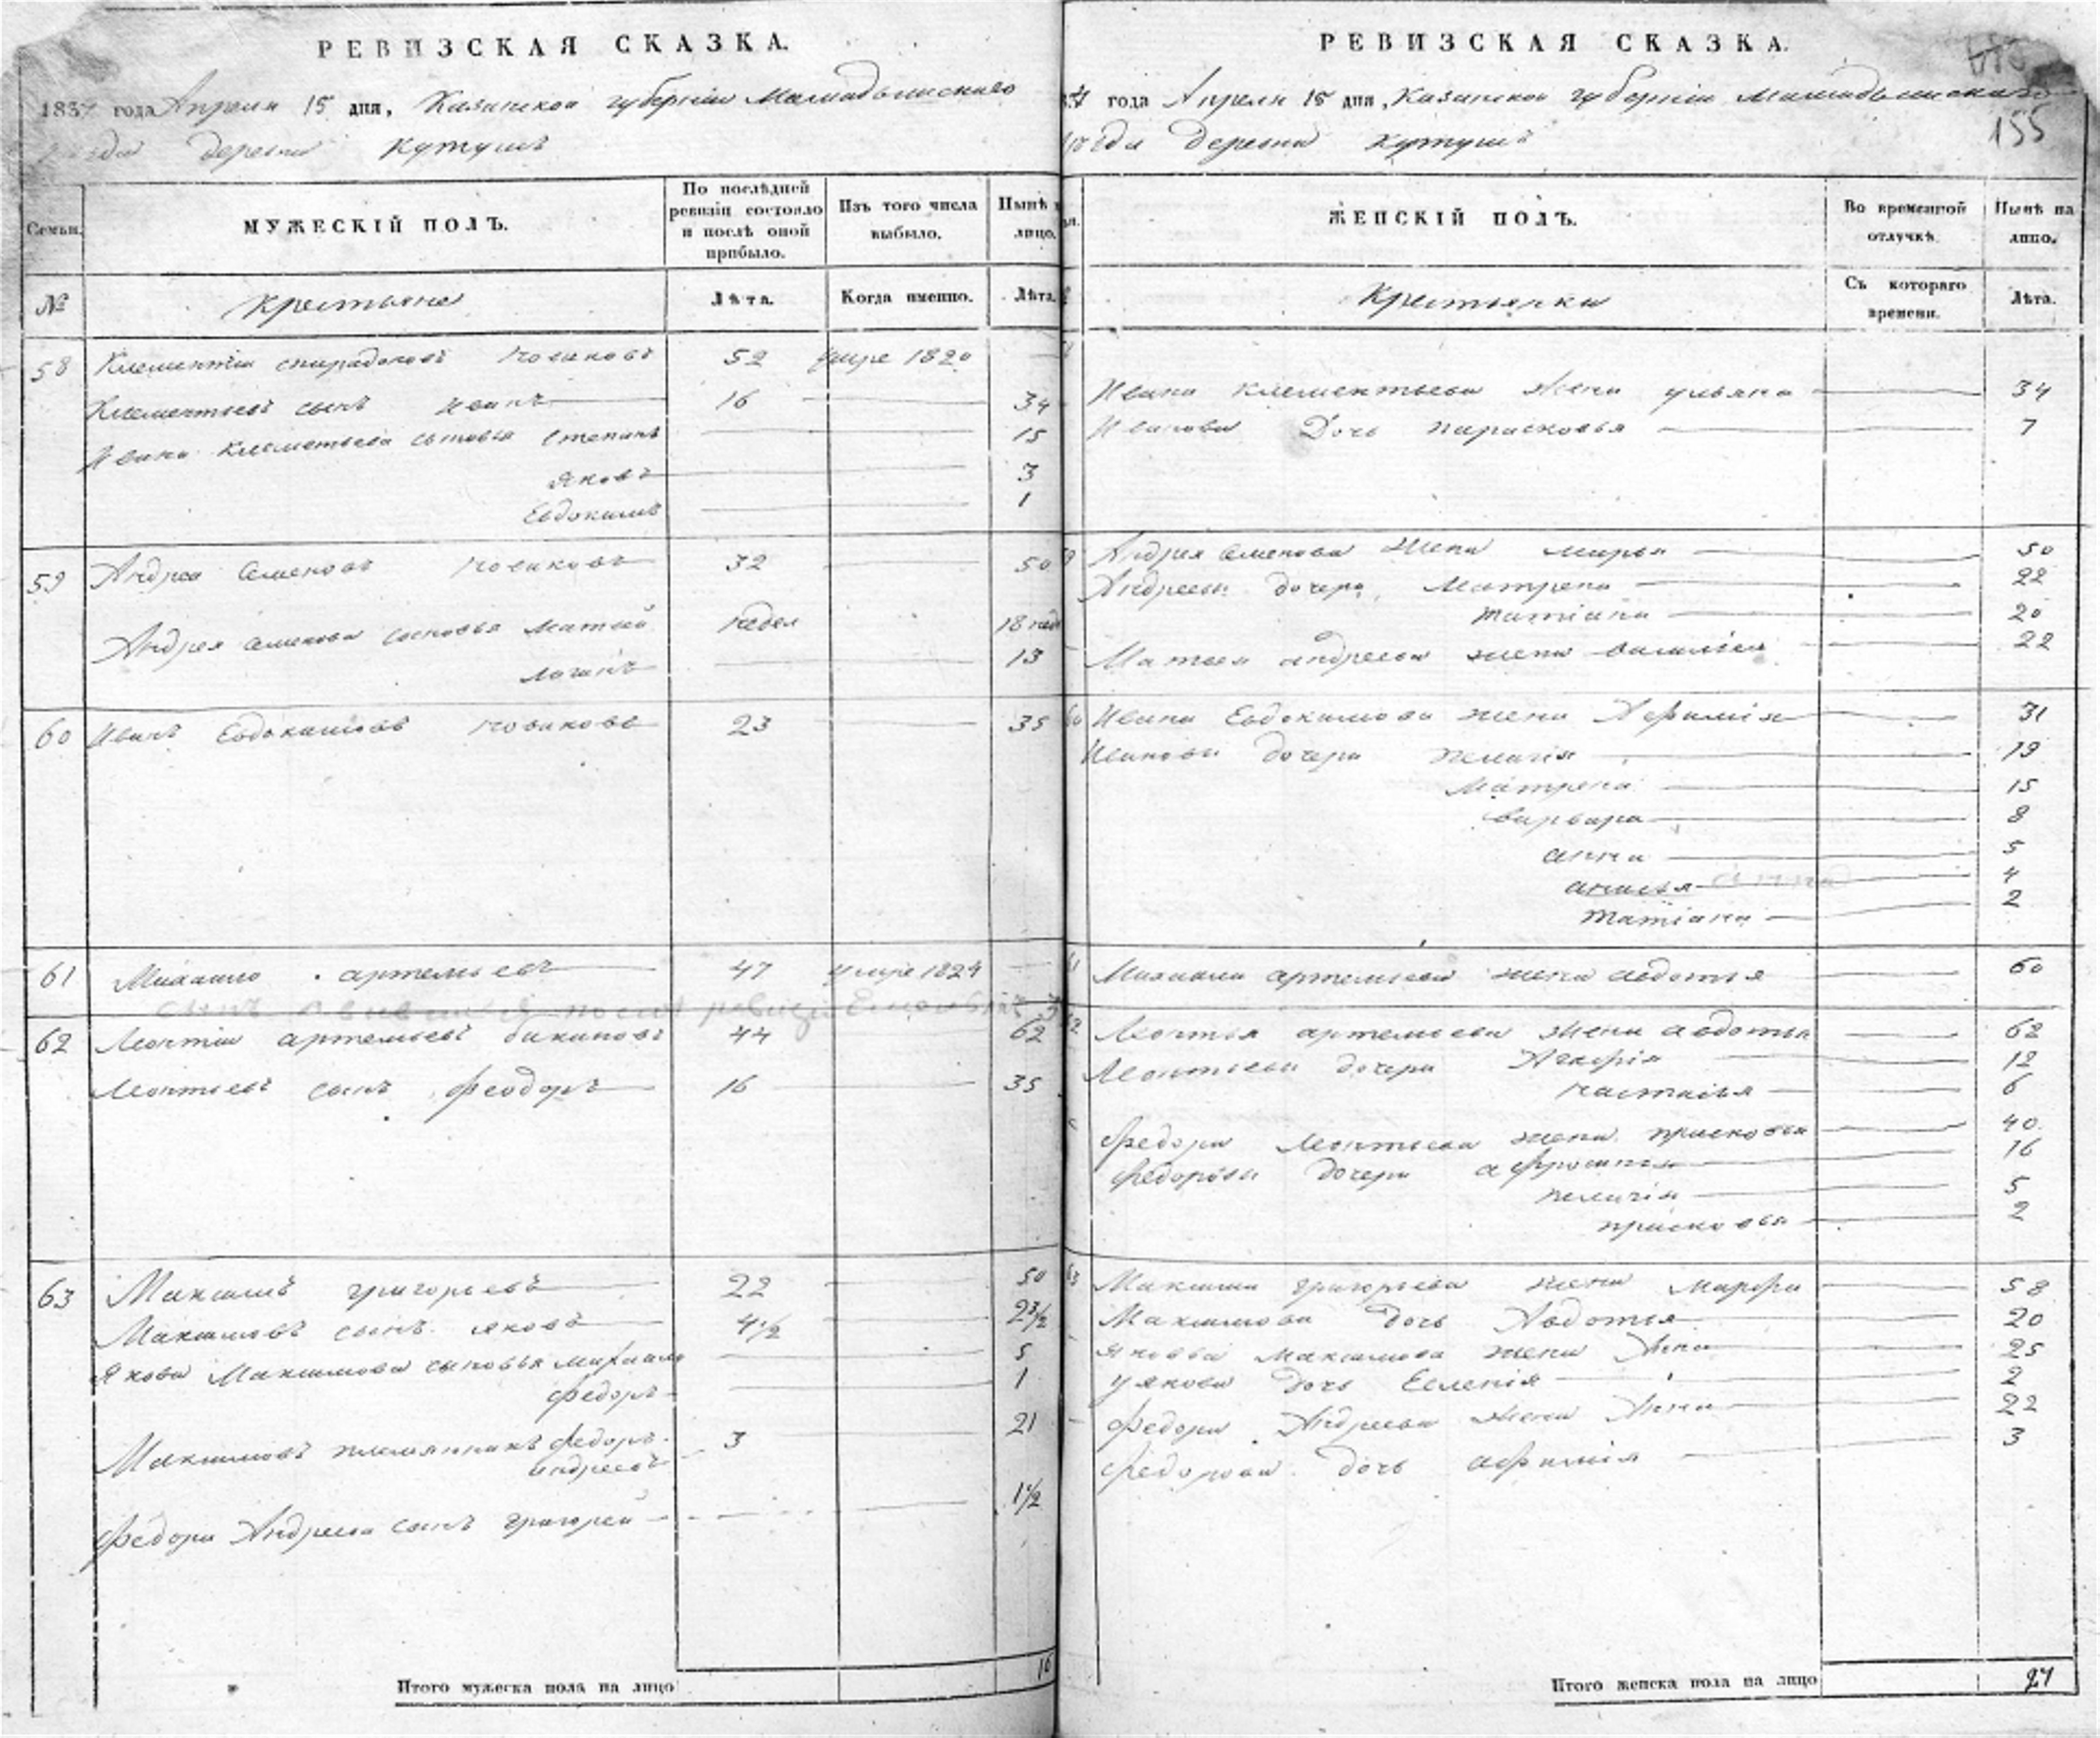 РЕВИЗСКАЯ СКАЗКА.
1834 года Апреля 15 дня, Казанской губернии Мамадышскаго
уезда деревни Кутушъ
Семьи.
МУЖЕСКІЙ ПОЛЪ.
По послѣдней ревизіи состояло и послѣ оной прибыло.
Изъ того числа выбыло.
Нынѣ на лицо.
№
Крестьяне
Лѣта.
Когда именно.
Лѣта.
58 Клементій спирадоновъ новиковъ 52 умре 1820
Клементьевъ сынъ иванъ 16 34
Ивана Клементьева сыновья Степанъ 15
яковъ 3
Евдокимъ 1
59 Андрей Семеновъ новиковъ 32 50
Андрея семенова сыновья матвей недел 18
логинъ 13
60 Иванъ Евдокимовъ новиковъ 23 35
61 Михайло артемьевъ 47 умре 1824
сынъ после ревизіи
62 Леонтій артемьевъ бикиновъ 44 62
Леонтьевъ сынъ Феодоръ 16 35
63 Максимъ григорьевъ 22 50
Максимовъ сынъ яковъ 4 1/2
Якова Максимова сыновья михайло 5
Федоръ 1
Максимовъ племянникъ Федоръ 3 21
андреевъ
Федора Андреева сынъ григорей 1 1/2
Итого мужеска пола на лицо 16
РЕВИЗСКАЯ СКАЗКА.
155
года Апреля 15 дня, Казанской губерніи Мамадышскаго
уезда деревни Кутушъ
ЖЕНСКІЙ ПОЛЪ.
Во временной отлучкѣ.
Нынѣ на лицо.
Крестьянки
Съ котораго времени.
Лѣта.
Ивана клементьева жена ульяна 34
Иванова Дочь парасковья 7
Андрея семенова жена марья 50
Андреевы дочери Матрена 22
татіана 20
Матвея андреева жена василиса 22
Ивана Евдокимова жена Афимія 31
Ивановы дочери пелагія 19
Матрена 15
варвара 8
анна 5
анисья 4
татіана 2
Михаила артемьева жена авдотья 60
Леонтья артемьева жена авдотья 62
Леонтьевы дочери 12
настасья 6
Федора Леонтьева жена прасковья 40
Федоровы дочери афросинья 16
пелагія 5
прасковья 2
63 Максима григорьева жена марфа 58
Максимова дочь Авдотья 20
якова максимова жена Анна 25
у якова дочь Евгенія 2
Федора Андреева жена Анна 22
Федорова дочь афимія 3
Итого женска пола на лицо 27